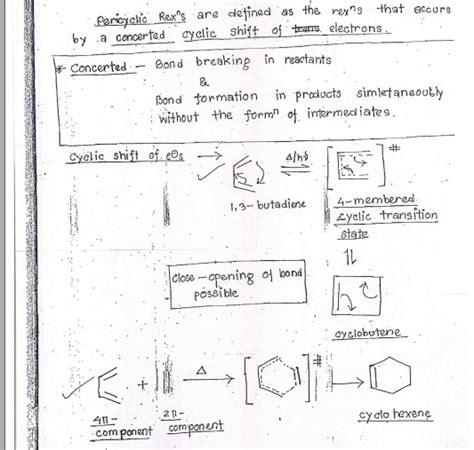 Pericyclic Rexⁿs are defined as the rexⁿs that occurs
by a concerted cyclic shift of trans electrons.
* Concerted - Bond breaking in reactants
&
Bond formation in products simletaneously
without the formⁿ of intermediates.
Cyclic shift of e⊖s → Δ/hν ⇌ #
1,3- butadiene
4-membered
cyclic transition
state
close-opening of bond
possible
cyclobutene
+ Δ → # →
4π-
component
2π-
component
cyclo hexene